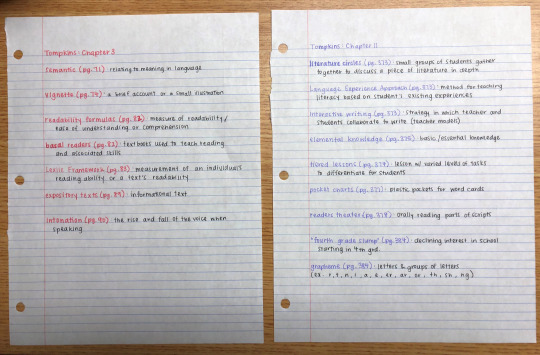 Tompkins: Chapter 3
semantic (pg. 71): relating to meaning in language
vignette (pg. 79): a brief account or a small illustration
readability formulas (pg. 82): measure of readability/
ease of understanding or comprehension
basal readers (pg. 82): textbooks used to teach reading
and associated skills
Lexile Framework (pg. 83): measurement of an individual's
reading ability or a text's readability
expository texts (pg. 89): informational text
intonation (pg. 90): the rise and fall of the voice when
speaking
Tompkins: Chapter 11
literature circles (pg. 373): small groups of students gather
together to discuss a piece of literature in depth
Language Experience Approach (pg. 373): method for teaching
literacy based on student's existing experiences
interactive writing (pg. 373): strategy in which teacher and
students collaborate to write (teacher models)
elemental knowledge (pg. 375): basic/essential knowledge
tiered lessons (pg. 377): lesson w/ varied levels of tasks
to differentiate for students
pocket charts (pg.): plastic pockets for word cards
readers theater (pg. 378): orally reading parts of scripts
"fourth grade slump" (pg. 384): declining interest in school
starting in 4th grd.
grapheme (pg. 389): letters & groups of letters
(ex. s, t, n, i, a, e, er, ar, or, th, sh, ng)